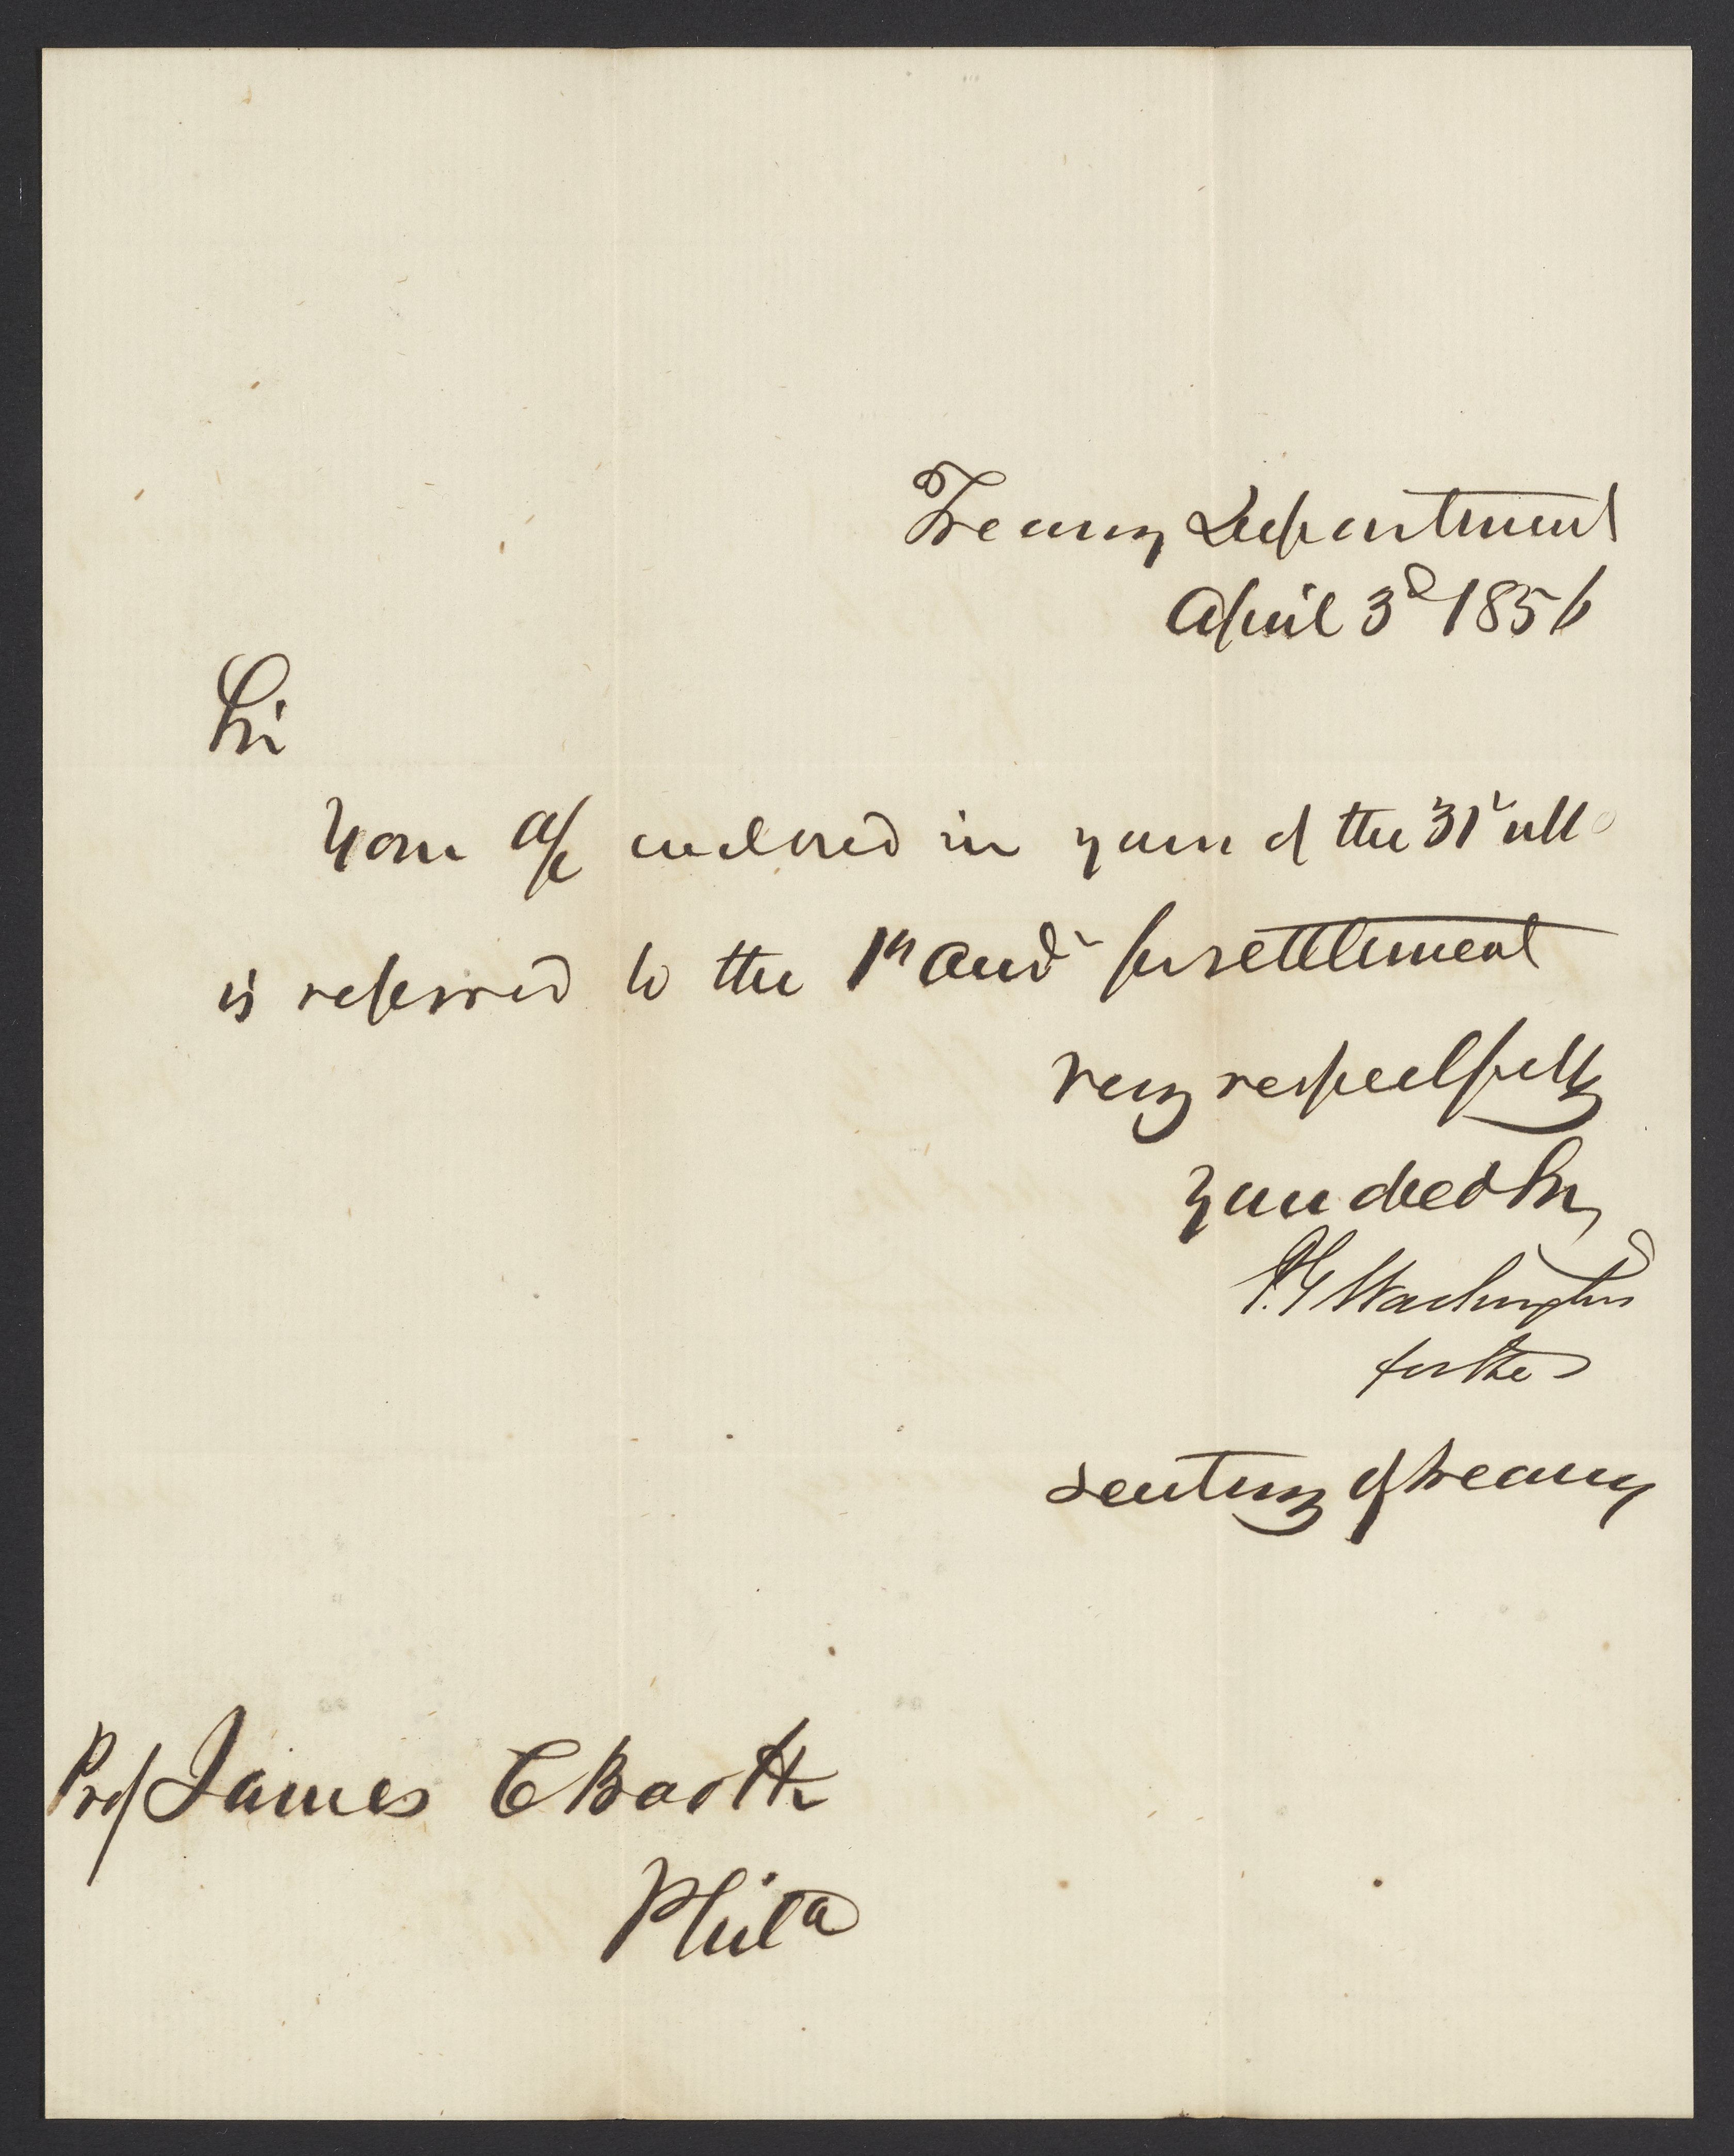 Treasury Department
April 3d 1856
Sir
Your a/c enclosed in yours of the 31st ulto
is referred to the 1st Audr for settlement
very respectfully
your obed Sr
P. G Washington
for the
Secretary of Treasury
Prof James C Booth
Phila